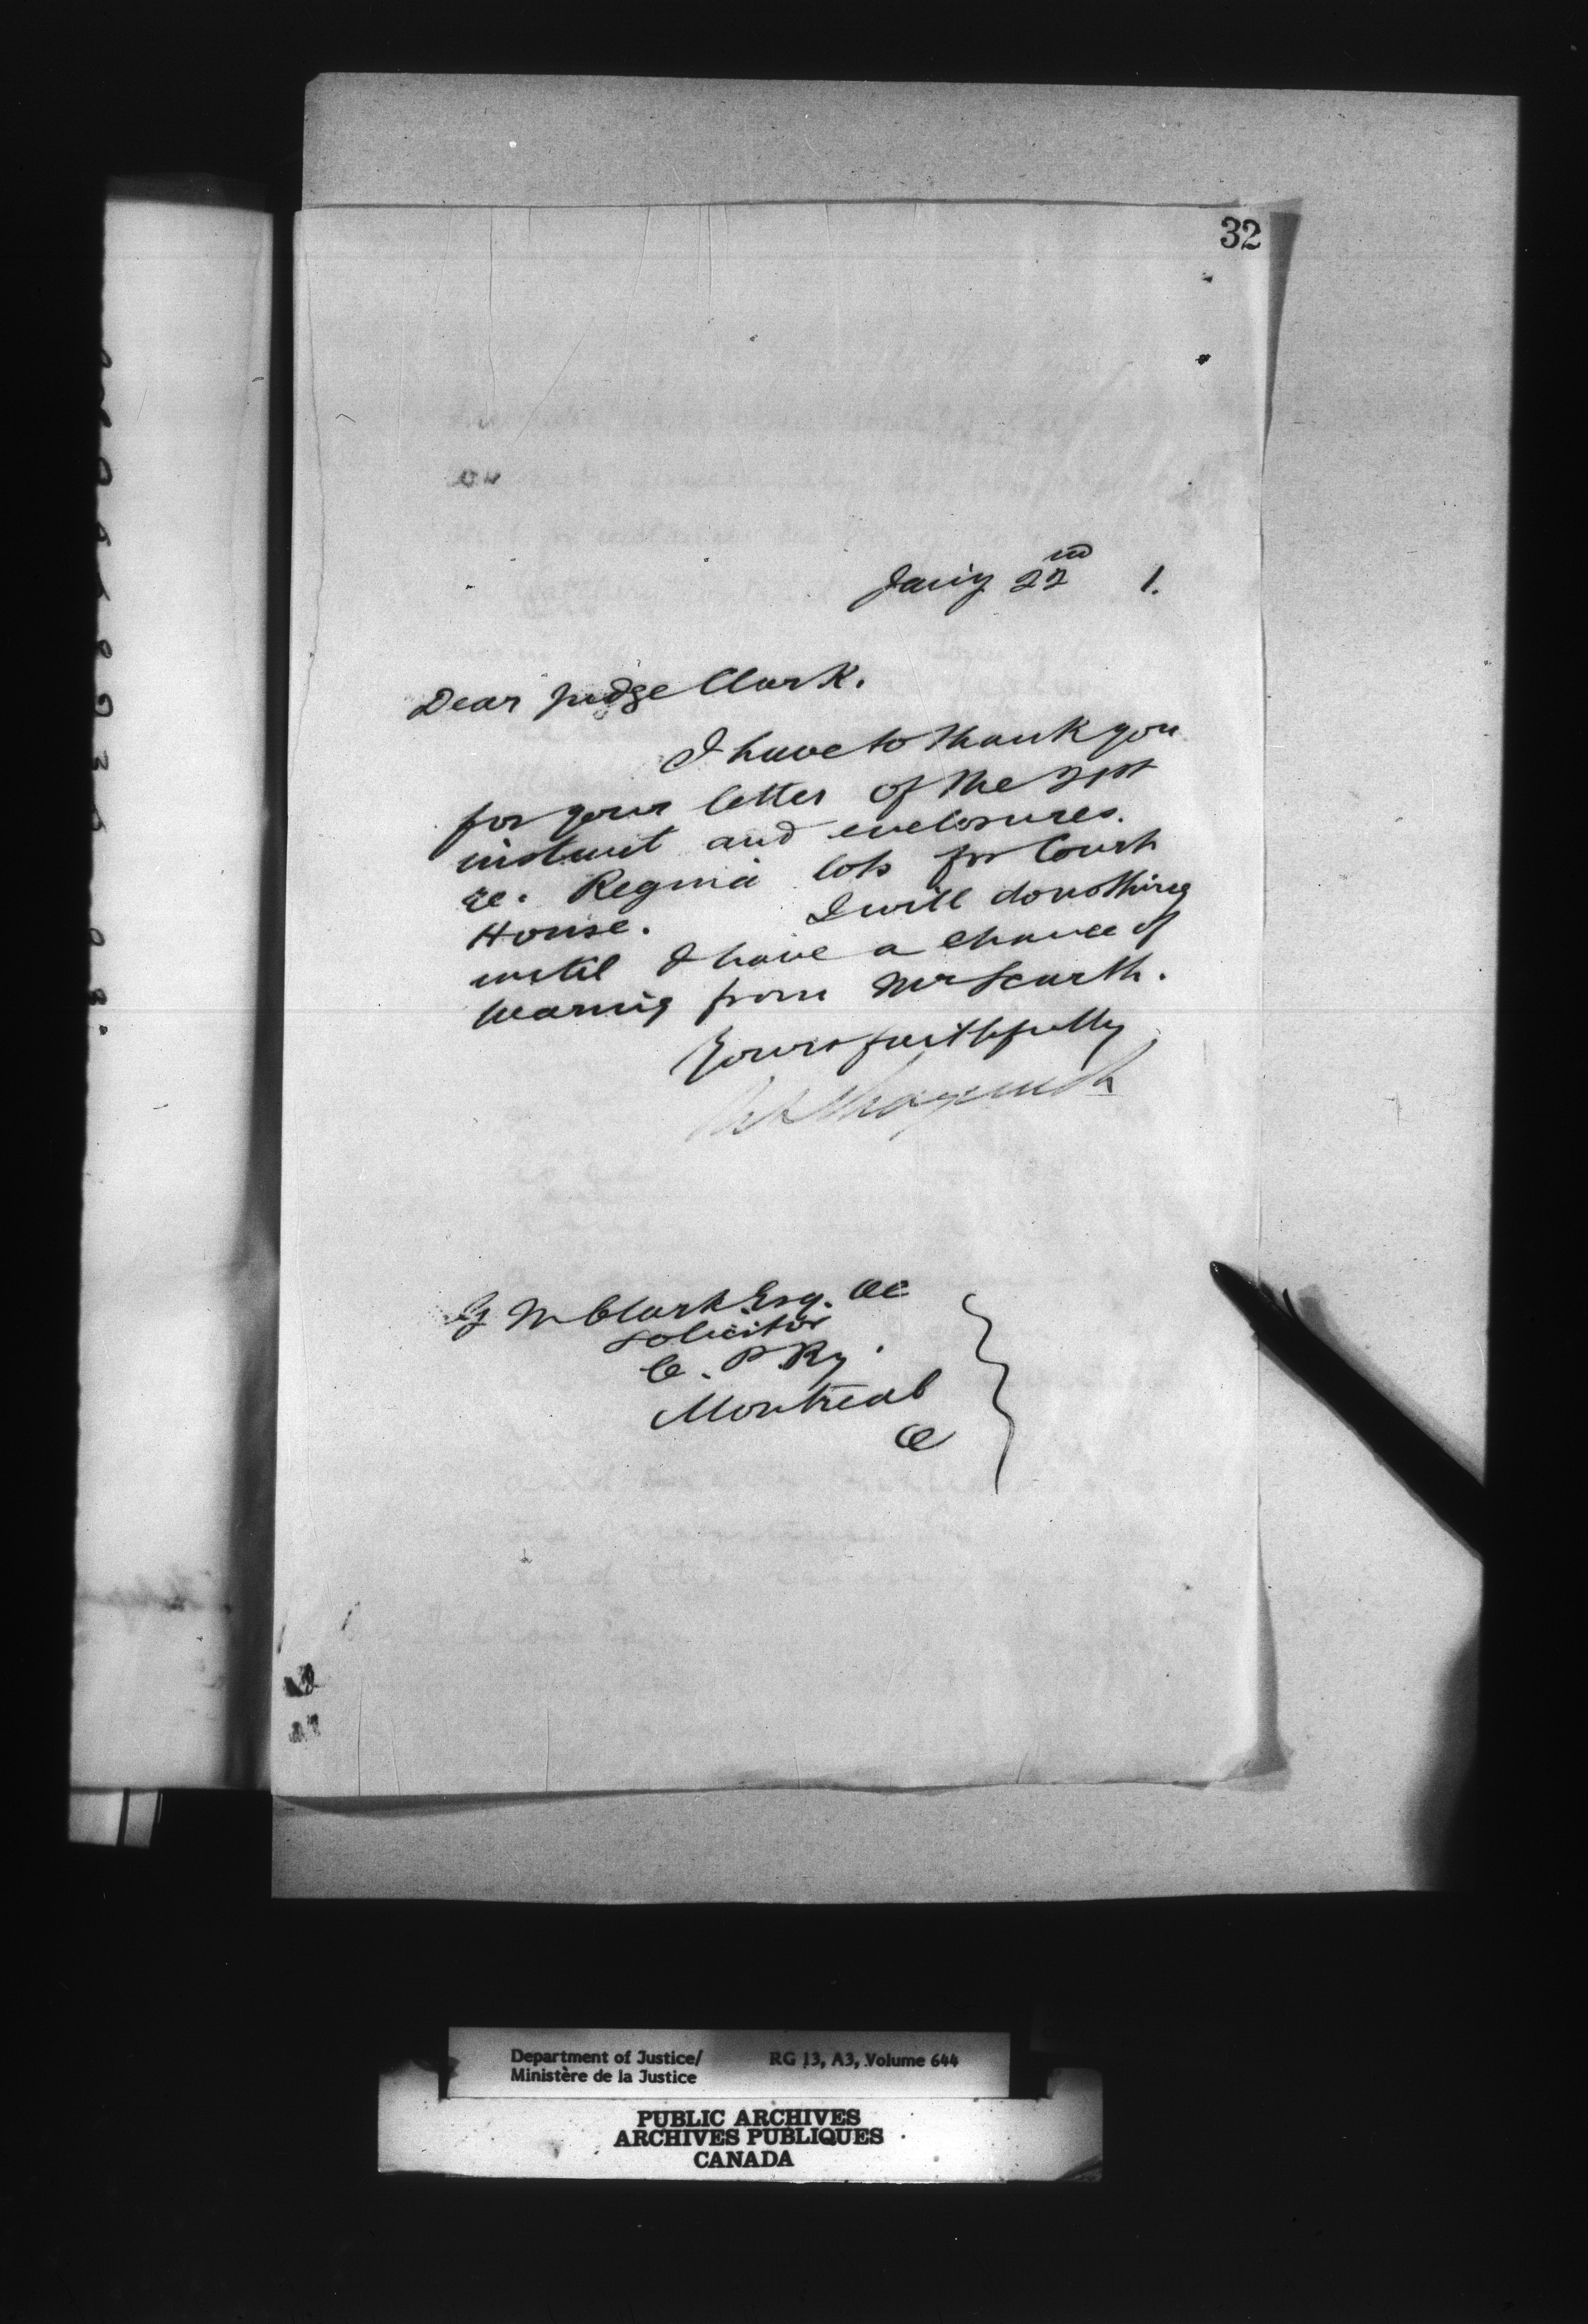 32
Jany 22nd 1.
Dear Judge Clark.
I have to thank you
for your letter of the 21st
instant and enclosures.
re. Regina lots for Court
House. I will do nothing
until I have a chance of
hearing from Mr Scarth.
Yours faithfully
G M Clark Esq. QC
Solicitor
C. P. Ry.
Montreal
Department of Justice/
Ministère de la Justice
RG 13, A3, Volume 644
PUBLIC ARCHIVES
ARCHIVES PUBLIQUES
CANADA